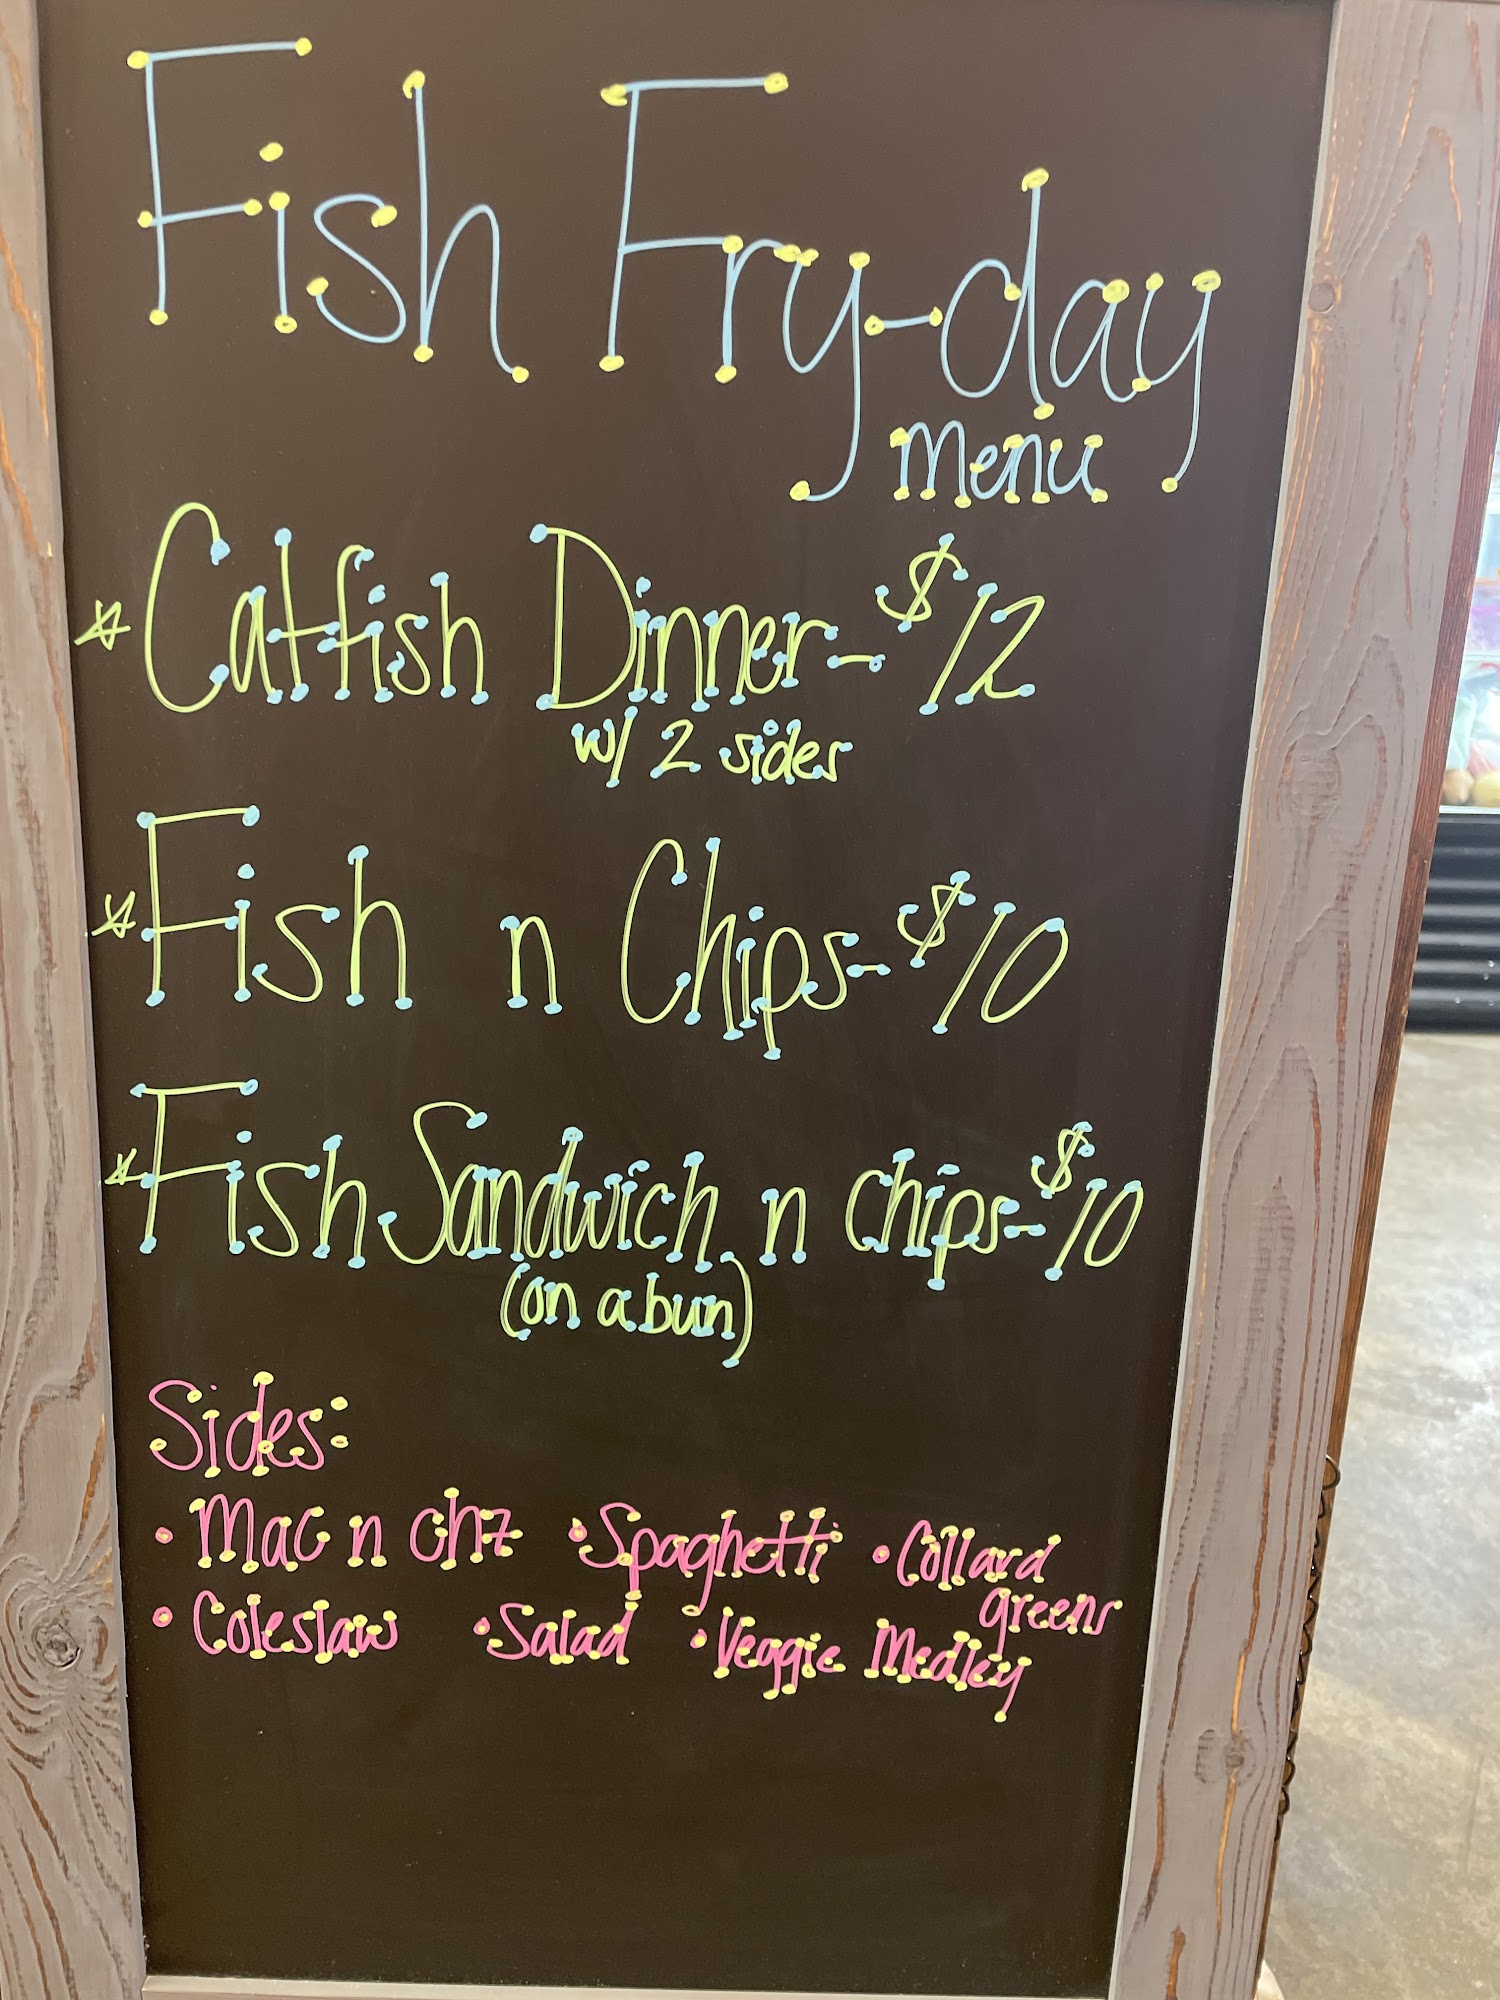 Fish Fry-day
menu
☆ Catfish Dinner - $12
w/ 2 sides
☆ Fish n Chips - $10
☆ Fish Sandwich n chips - $10
(on a bun)
Sides:
• Mac n chz • Spaghetti • Collard greens
• Coleslaw • Salad • Veggie Medley